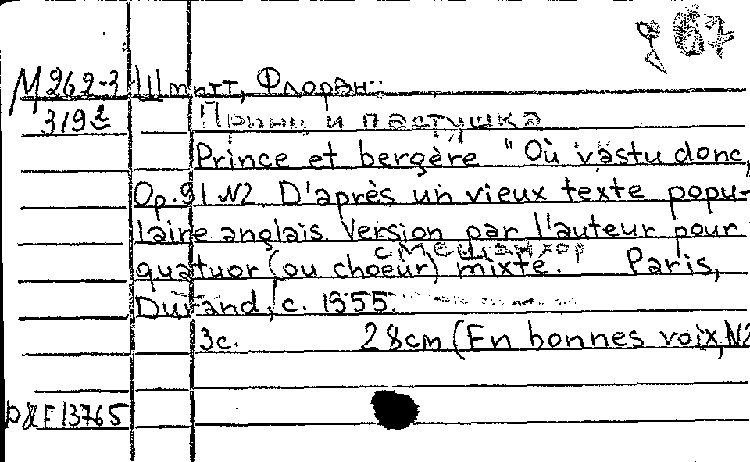 67
М262-3 Шмитт, Флоран:
319 Принц и пастушка
Prince et bergère "Où vastu donc,
Op. 91 N2 D'après un vieux texte popu-
laire anglais. Version par l'auteur pour
смешан. хор
quatuor (ou choeur) mixte. Paris,
Durand, c. 1955.
3c. 28cm (En bonnes voix, N2
F13765